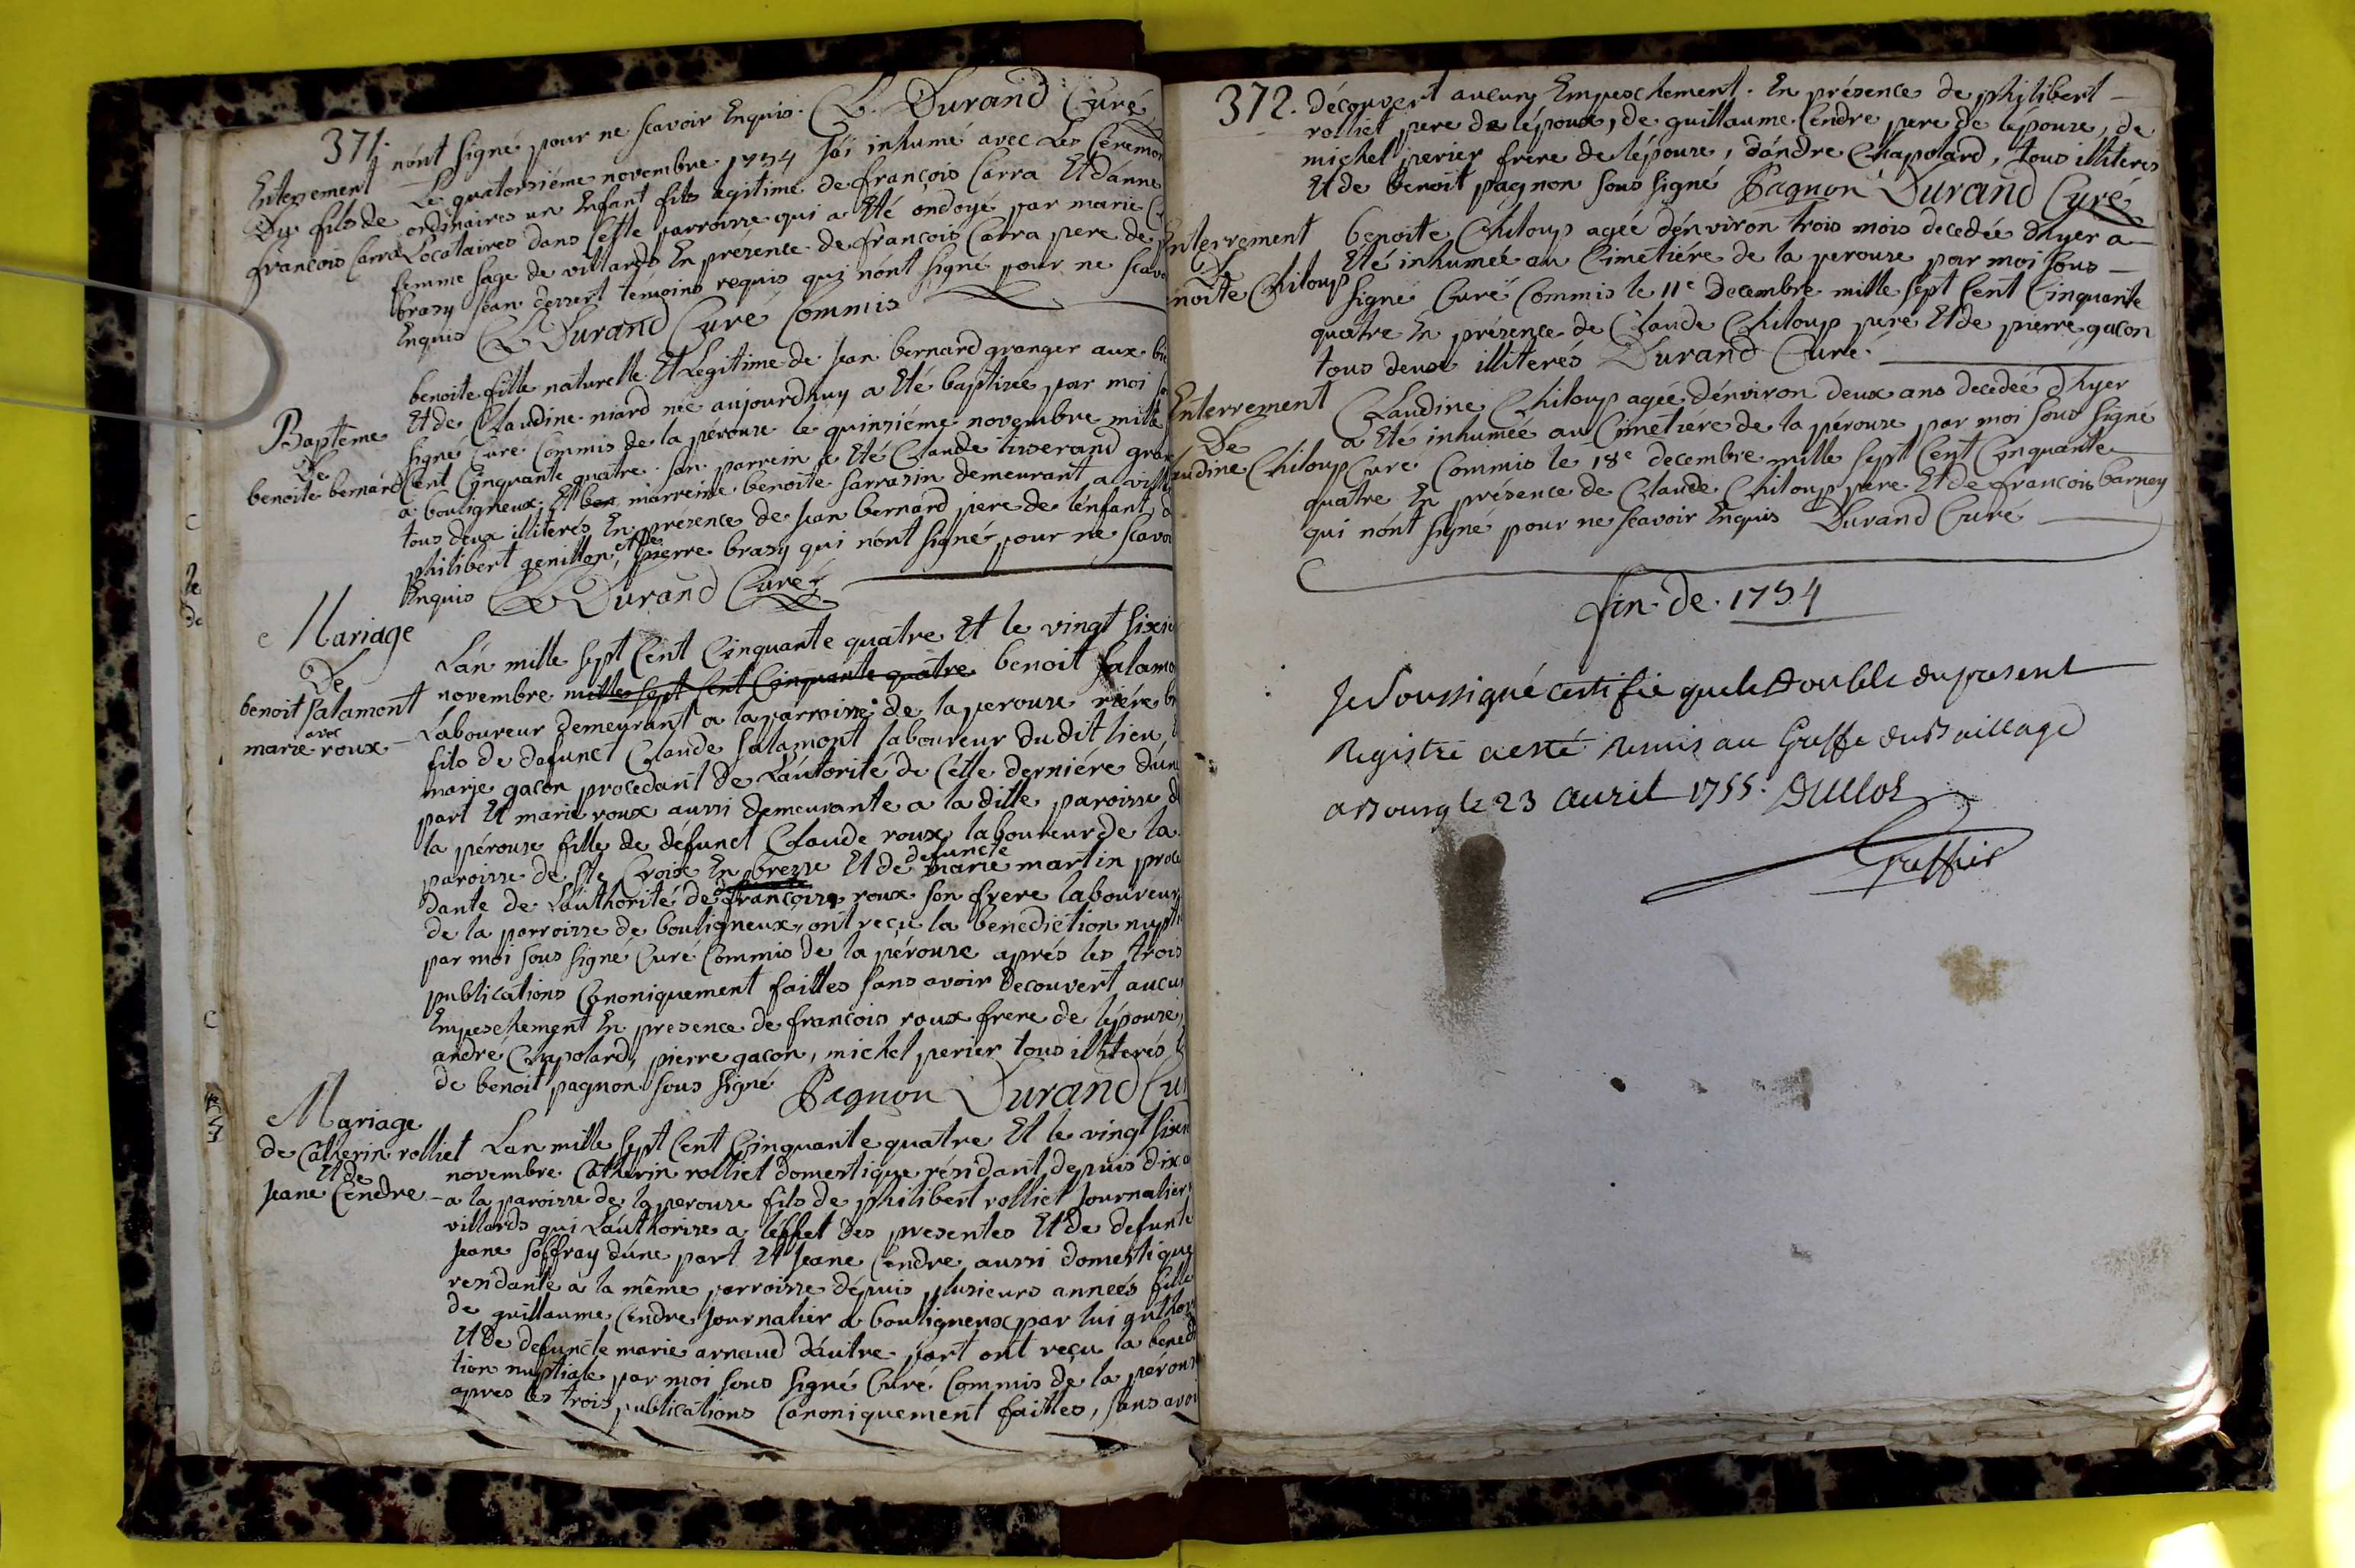 371.
nónt signé pour ne scavoir Enquis. Durand Curé
Enterrement
Du fils de
françois Carra
Le quatorsiéme novembre 1754 J'ai inhumé avec Les Ceremon
ordinaires un Enfant fils légitime de françois Carra Et dánne
Locataires dans Cette parroisse qui a Eté ondoyé par marie
femme sage de villards En présence de françois Carra pere de
brasy Jean dessert temoins requis qui nónt signé pour ne scavo
Enquis Durand Curé Commis
Baptéme
De
benoite bernard
benoite fille naturelle Et Légitime de Jean bernard granger aux
Et de Claudine niard née aujourdhuy a Eté baptisée par moi
signé Curé Commis de la pérouse le quinsiéme novembre mille
Cent Cinquante quatre. son parrein a Eté Claude tisserand gran
a bouligneux Et marreine benoite sarrasin demeurant a vill
tous deux illiterés En présence de Jean bernard pere de lénfant,
philibert genillon, et de pierre brasy qui nónt signé pour ne scavo
Enquis Durand Curé
Mariage
De
benoit salamont
avec
marie roux
Lán mille sept Cent Cinquante quatre Et le vingt sixie
novembre mille sept Cent Cinquante quatre benoit salamo
Láboureur demeurant a la parroisse de la perouse riére
fils de defunct Claude salamont laboureur Dudit lieu,
marie gacon procedant de Láutorité de Cette derniére dúne
part Et marie roux aussi demeurante a la ditte paroisse d
la pérouse fille de défunct Claude roux laboureur de la
paroisse de Ste Croix En bresse Et de defuncte marie martin proce
dante de Láuthorité de françois roux son frere laboureur
de la parroisse de bouligneux, ont reçu la benediction nupti
par moi sous signé Curé Commis de la pérouse aprés les trois
publications Canoniquement faittes sans avoir decouvert aucun
Empeschement En presence de françois roux frere de lépouse,
andré Chapolard, pierre gacon, michel perier tous illiterés
de benoit pagnon sous signé Pagnon Durand Cu
Mariage
de Catherin rolliet
Et de
Jeane Cendre
Lan mille sept Cent Cinquante quatre Et le vingt sixie
novembre Catherin rolliet domestique résidant depuis dix a
a la paroisse de la perouse fils de philibert rolliet Journalier
villards qui Láuthorise a léffet des presentes Et de defunte
Jeane soffray dúne part Et Jeane Cendre aussi domestique
residante a la même parroisse dépuis plusieurs anneés fille
de guillaume Cendre Journalier a bouligneux par lui author
Et De defuncte marie arnaud Dáutre part ont reçu la benedi
tion nuptiale par moi sous signé Curé Commis de la pérouse
apres les trois publications Canoniquement faittes, sans avoi
372. découvert aucun Empeschement. En présence de philibert
rolliet pere de lépoux, de guillaume Cendre pere de lépouse, de
michel perier frere de lépouse, dándre Chapolard, tous illiteres
Et de benoit pagnon sous signé Pagnon Durand Curé
Enterrement
De
noite Chiloup
benoite Chiloup ageé dénviron trois mois decedée dhyer a
Eté inhumeé au Cimetiére de la perouse par moi sous
signé Curé Commis le 11e Decembre mille sept Cent Cinquante
quatre En présence de Claude Chiloup pere Et de pierre gacon
tous deux illiterés Durand Curé
Enterrement
De
audine Chiloup
Claudine Chiloup ageé dénviron deux ans decedée dhyer
a Eté inhumeé au Cimetiére de la pérouse par moi sous signé
Curé Commis le 18e decembre mille sept Cent Cinquante
quatre En présence de Claude Chiloup pere Et de francois barney
qui nónt signé pour ne scavoir Enquis Durand Curé
fin. de. 1754
Je Soussigné certifie que le Double du present
Registre a esté Remis au Greffe du Baillage
a Bourg le 23 avril 1755. Duclos
Greffier